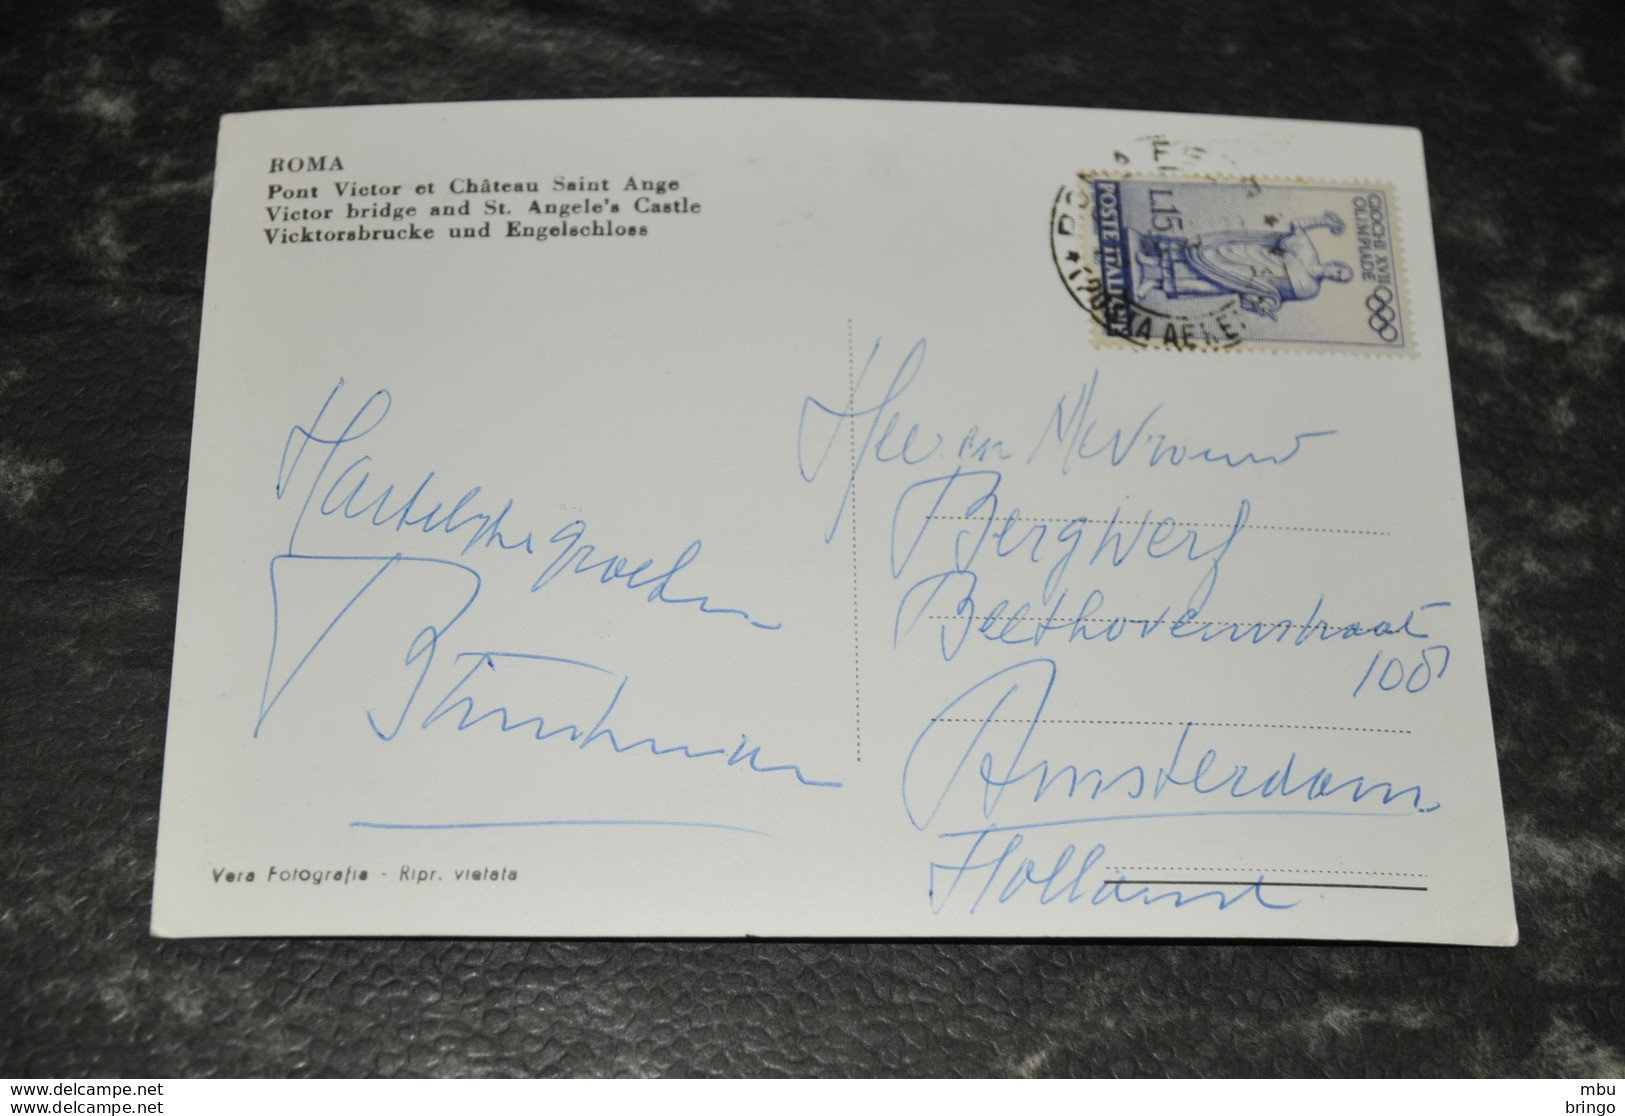 ROMA
Pont Victor et Château Saint Ange
Victor bridge and St. Angele's Castle
Vicktorsbrucke und Engelschloss
POSTE ITALIANE
L.15
GIOCHI XVII
OLIMPIADE
ROMA
POSTA AEREA
Hartelijke groeten
Heer en Mevrouw
Bergwerf
Beethovenstraat
108
Amsterdam
Holland
Vera Fotografia - Ripr. vietata
mbu
bringo
delcampe.net